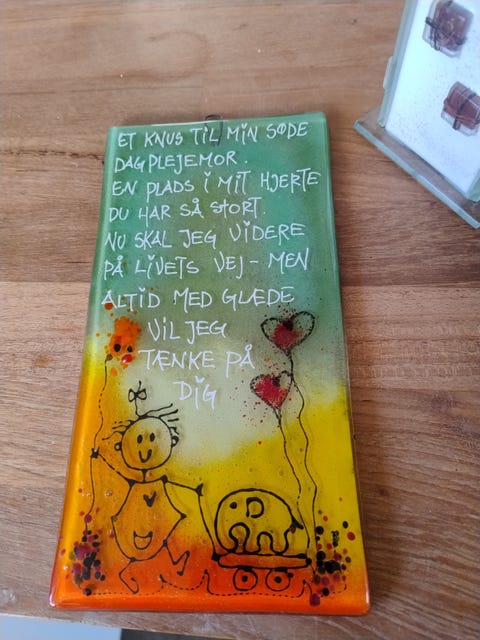 ET KNUS TIL MIN SØDE
DAGPLEJEMOR.
EN PLADS I MIT HJERTE
DU HAR SÅ STORT.
NU SKAL JEG VIDERE
PÅ LIVETS VEJ - MEN
ALTID MED GLÆDE
VIL JEG
TÆNKE PÅ
DIG